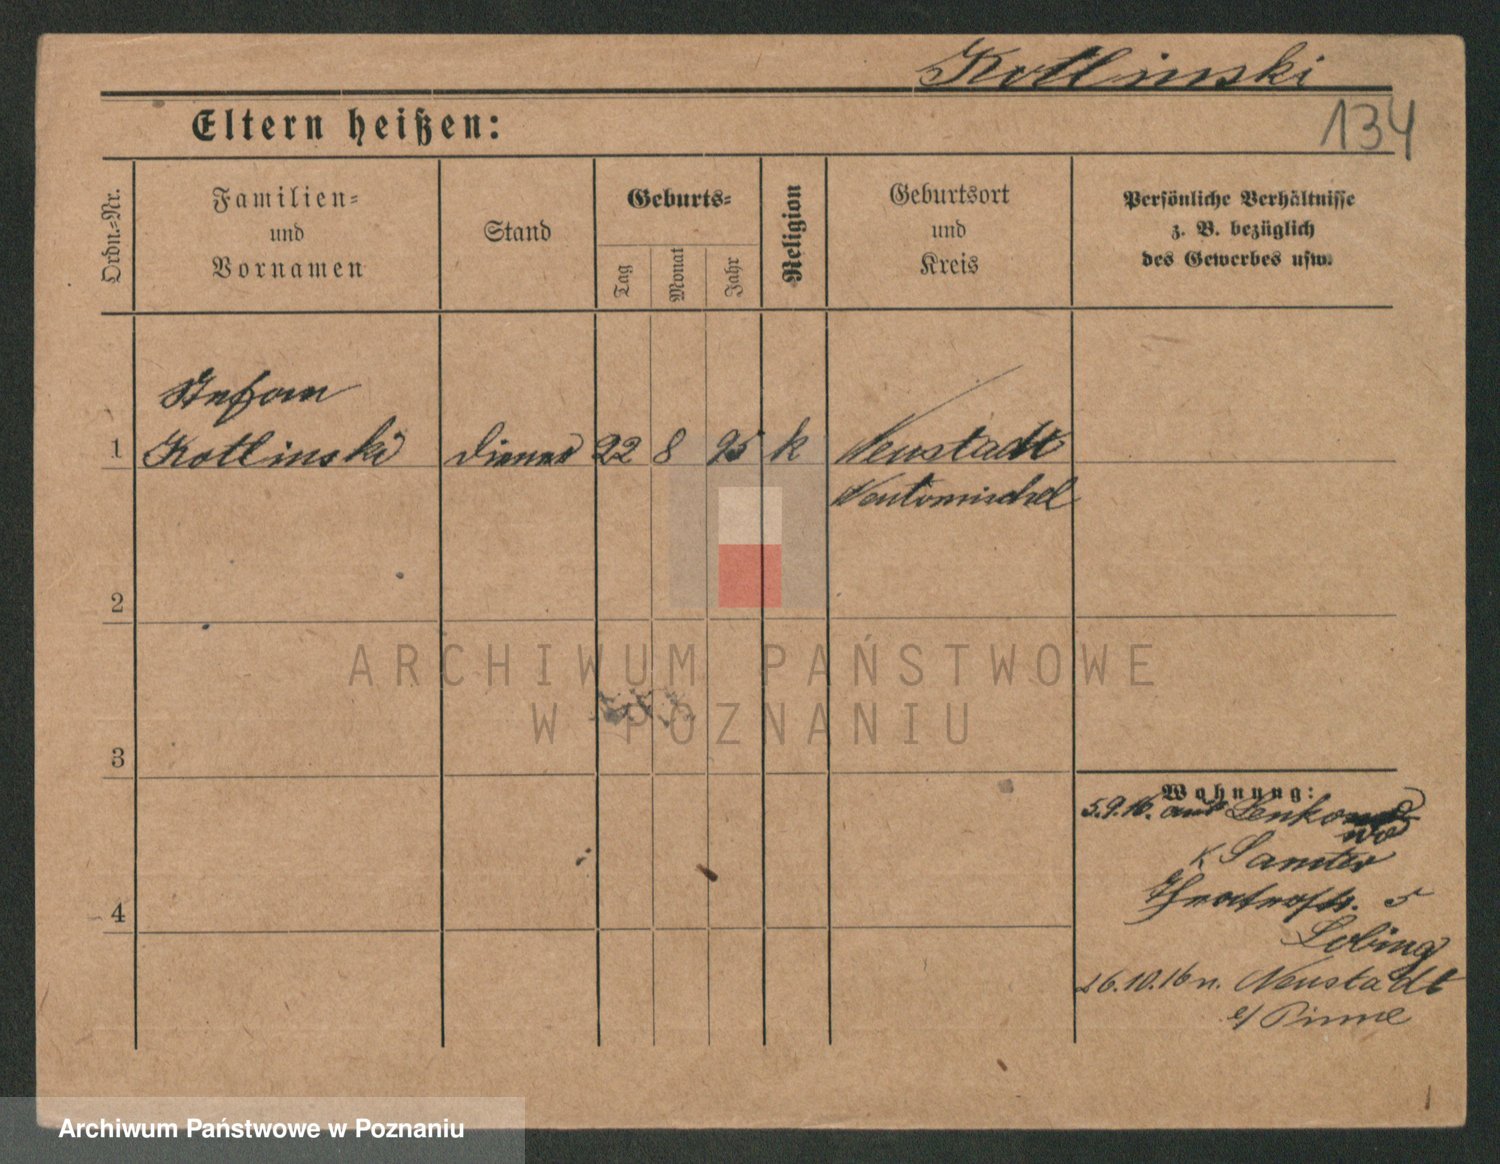 Kotlinski
134
Eltern heißen:
Ordn.=Nr.
Familien=
und
Vornamen
Stand
Geburts=
Tag
Monat
Jahr
Religion
Geburtsort
und
Kreis
Persönliche Verhältnisse
z. B. bezüglich
des Gewerbes usw.
Stefan
1 Kotlinski Diener 22 8 95 k Neustadt
Neutomischel
2
ARCHIWUM PAŃSTWOWE
W POZNANIU
3
Wohnung:
5.9.16. aus Lenko
wo
K Samter
Theaterstr. 5
26.10.16 n. Neustadt
b/ Pinne
4
Archiwum Państwowe w Poznaniu